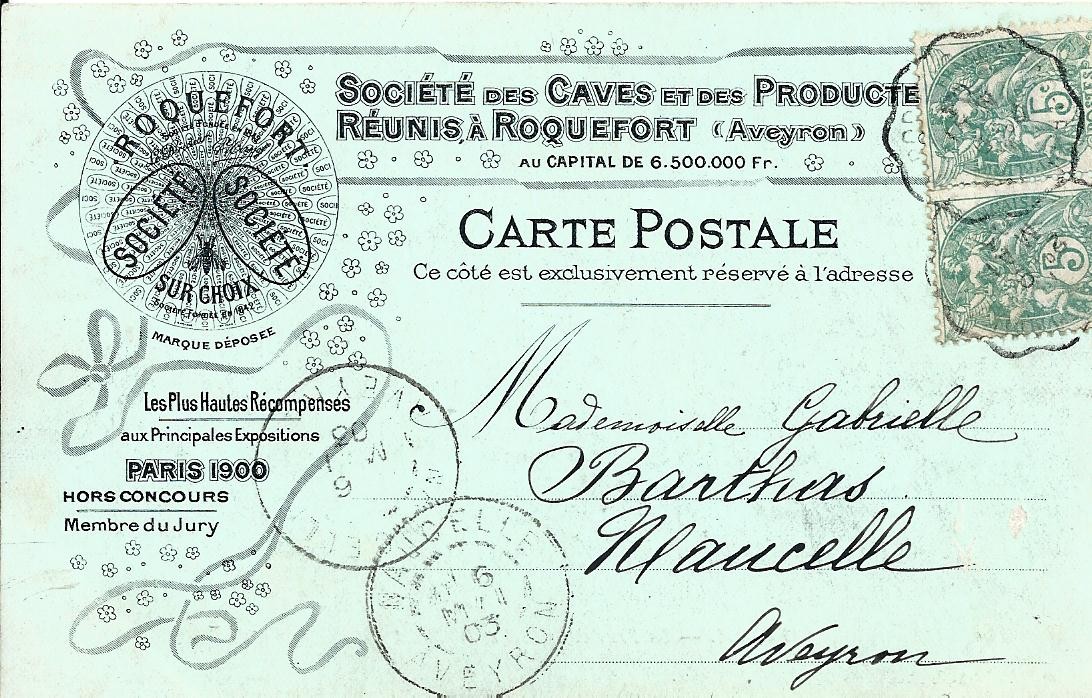 SOCIÉTÉ DES CAVES ET DES PRODUCTE
RÉUNIS À ROQUEFORT (AVEYRON)
AU CAPITAL DE 6.500.000 Fr.
ROQUEFORT
SOCIÉTÉ SOCIÉTÉ
SUR CHOIX
SOCIÉTÉ FONDÉE EN 1842
MARQUE DÉPOSÉE
CARTE POSTALE
Ce côté est exclusivement réservé à l'adresse
5c
5c
Les Plus Hautes Récompenses
aux Principales Expositions
PARIS 1900
HORS CONCOURS
Membre du Jury
Mademoiselle Gabrielle
Barthas
Naucelle
Aveyron
NAUCELLE
6
MAI
03
AVEYRON